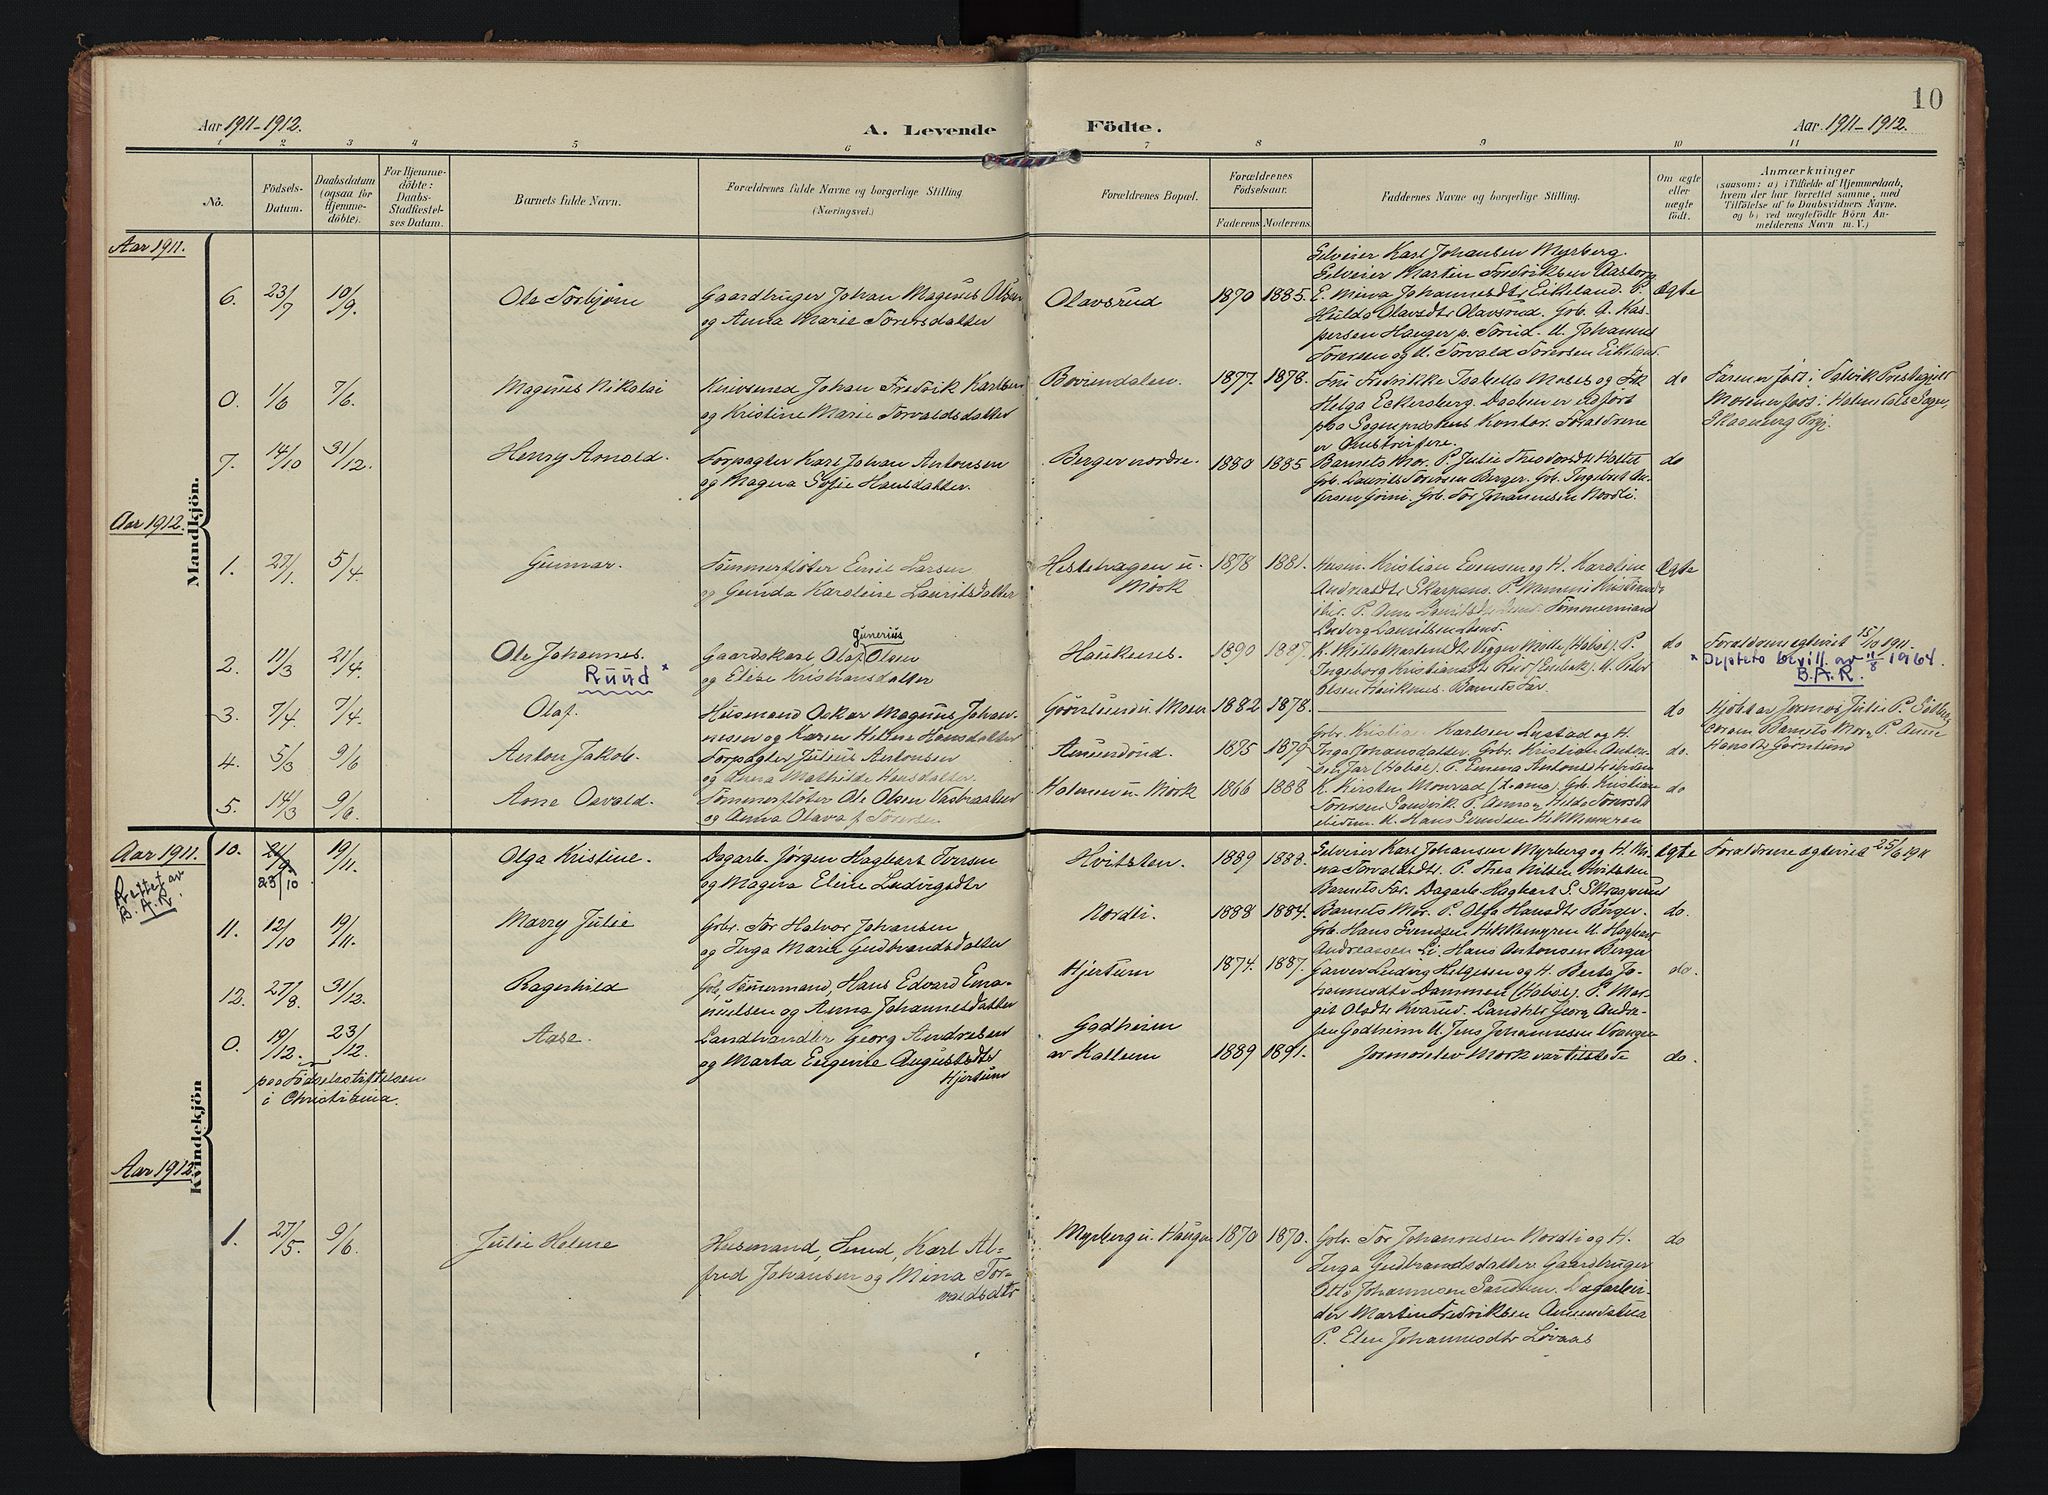 10
Aar 1911-1912.
A. Levende Födte.
Aar 1911-1912.
1 2 3 4 5 6 7 8 9 10 11
No.
Födsels-
Datum.
Daabsdatum
(ogsaa for
Hjemme-
döbte).
For Hjemme-
döbte:
Daabs-
Stadfæstel-
ses Datum.
Barnets fulde Navn.
Forældrenes fulde Navne og borgerlige Stilling
(Næringsvei.)
Forældrenes Bopæl.
Forældrenes
Födselsaar.
Faderens Moderens
Faddernes Navne og borgerlige Stilling.
Om ægte
eller
uægte
födt.
Anmærkninger
(saasom: a) i Tilfælde af Hjemmedaab,
hvem der har forrettet samme, med
Tilföielse af to Daabsvidners Navne.
og b) ved uægtefödte Börn An-
melderens Navn m. V.)
Mandkjön.
Aar 1911.
6. 23/7 10/9
Ole Torbjørn
Gaardbruger Johan Magnus Olsen
og Anna Marie Torersdatter
Olavsrud
1870 1885.
Selveier Karl Johansen Myrberg.
Selveier Martin Fredriksen Aasborg
E. Mina Johannesdtr Eikeland. P.
Hulda Olavsdtr Olavsrud. Grb. A. Kas-
persen Hauger p. Torud. U. Johannes
Torersen og U. Torvald Torersen Eikeland.
Ægte
0. 1/6 7/6.
Magnus Nikolai
Johan Fredrik Karlsen
og Kristine Marie Torvaldsdatter
1877. 1878.
Fru Fredrikke Isabella Moses og Frk
Helga Eckersberg. Daaben er udført
paa Sogneprestens Kontor. Forældrene
er
do
Faren født i Talvik Prestegjeld
Moren født i
7. 14/10 31/12.
Henry Arnold.
Forpagter Karl Johan Antonsen
og Magna Sofie Hansdatter.
Berger nordre.
1880 1885
Barnets Mor. P. Julie
Grb. Laurits Torersen Berger. Grb. Ingebret An-
dersen Grini. Grb. Tor Johannesen Nordli.
do
Aar 1912.
1. 27/1. 5/4.
Gunnar.
Tømmerfløter Emil Larsen
og Gunda Karoline Lauritsdatter
Hestehagen u.
Mörk
1878 1881.
Husm. Kristian Evensen og H. Karoline
Andreasdtr Skarpens. P.
P. Anna Lauritsdtr Lund. Tømmermand
Ludvig Lauritsen Lund.
Ægte
2. 11/3 21/4.
Ole Johannes.
Ruud *
Gaardskarl Olaf Gunerius Olsen
og Elise Kristiansdatter
Haukenes.
1890 1889.
Ingeborg Kristiansdtr
Olsen Haukenes. Barnets Far.
do
Forældrene egteviet 15/10 1911.
* bevill. av 11/8 1964.
B.A.R.
3. 7/4. 7/4.
Olaf.
Husmand Oskar Magnus Johan-
nesen og Karen Helene Hansdatter
Grønlund u. Mosen
1882 1878.
do
Hjdbt av Jormor Julie P.
coram Barnets Mor, P. Anne
Hansdtr Grønlund
4. 5/3 9/6
Anton Jakob.
Forpagter Julius Antonsen
og Anna Mathilde Hansdatter.
Amundrud.
1875 1879
Grb. Kristian Karlsen Lystad og H.
Inga Johansdatter. Grb. Kristian Anton-
sen Jar (Hobøl). P. Emma Antonsdtr
do.
5. 14/3 9/6.
Arne Osvald.
Tømmerfløter Ole Olsen
og Anna Olava f. Torersen
Holmen u. Mørk
1866 1888
K. Kirsten Monrad Grb. Kristian
Torersen Sandvik P. Anna og Hilda
U. Hans Svendsen Hekkemyren
do
Kvindekjön
Aar 1911.
10. 21/9 19/11.
23/10
Rettet av
B.A.R.
Olga Kristine.
Dagarb. Jørgen Hagbart Iversen
og Magna Eline Ludvigsdtr
Hvitsten.
1889 1888.
Selveier Karl Johansen Myrberg og H. Mi-
na Torvaldsdtr. P. Thea Nilsen Hvitsten
Barnets Far. Dagarb. Hagbart S.
Ægte
Forældrene egteviet 25/6 1911
11. 12/10 19/11.
Marry Julie
Grbr. Tor Halvor Johansen
og Inga Marie Gudbrandsdatter
Nordli.
1888 1884.
Barnets Mor. P. Olga Hansdtr Berger.
Grb. Hans Svendsen Hekkemyren U. Hagbart
Andreassen Li. Hans Antonsen Berger
do.
12. 27/8 31/12.
Ragnhild
Grb, Tømmermand, Hans Edvard Ema-
nuelsen og Anna Johannesdatter
Hjertum
1874. 1887.
Garver Ludvig Helgesen og H. Berta Jo-
hannesdtr Dammen (Hobøl). P. Mar-
git Olsdtr Kvarud. Landhdl Georg Andre-
sen Godheim U. Jens Johannesen Vrangen
do.
0. 19/12. 23/12.
paa Fødselsstiftelsen
i Christiania.
Aase.
Landhandler Georg Andresen
og Marta Eugenie Augustsdtr
Hjertum
Godheim
av Kallum
1889 1891.
Jormorelev Mork var tilstede
do.
Aar 1912.
1. 27/5. 9/6.
Julie Helene
Husmand, Smed, Karl Al-
fred Johansen og Mina Tor-
valdsdtr
Myrberg u. Haugen
1870 1870.
Grbr. Tor Johannesen Nordli og H.
Inga Gudbrandsdatter. Gaardbruger
Otto Johannesen Sandum. Dagarbei-
der Martin Fredriksen Amundalen
P. Elen Johannesdtr Løvaas
do